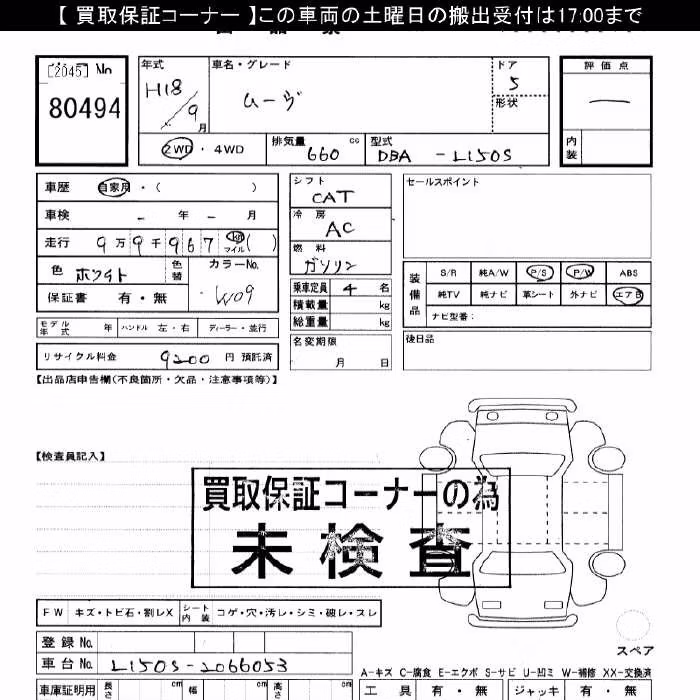 【 買取保証コーナー 】この車両の土曜日の搬出受付は17:00まで
[2045] No
80494
年式 H18 / 9 月
車名・グレード ムーヴ
ドア 5
形状
評価点 —
内装
2WD ・ 4WD
排気量 660 cc
型式 DBA - L150S
車歴 自家用 ・ ( )
車検 - 年 - 月
走行 9万9千967 km マイル ( )
色 ホワイト 色替
カラーNo. W09
保証書 有・無
シフト CAT
冷房 AC
燃料 ガソリン
乗車定員 4 名
積載量 kg
総重量 kg
名変期限 月 日
セールスポイント
装備品
S/R 純A/W P/S P/W ABS
純TV 純ナビ 革シート 外ナビ エアB
ナビ型番:
後日品
モデル年式 年 ハンドル 左・右 ディーラー・並行
リサイクル料金 9200 円 預託済
【出品店申告欄(不良箇所・欠品・注意事項等)】
【検査員記入】
買取保証コーナーの為
未検査
FW キズ・トビ石・割レX シート内装 コゲ・穴・汚レ・シミ・破レ・スレ
登録 No.
車台 No. L150S-2066053
スペア
A-キズ C-腐食 E-エクボ S-サビ U-凹ミ W-補修 XX-交換済
車庫証明用 長さ cm 幅 cm 高さ cm
工具 有・無 ジャッキ 有・無